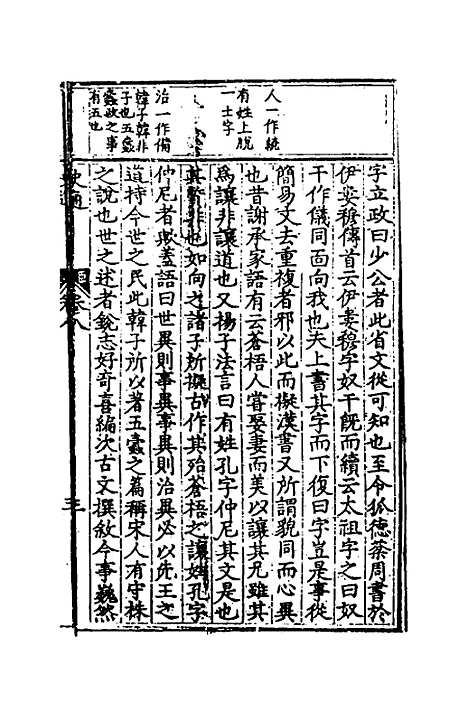 人一作繞
有姓上脫
一士字
治一作備
韓子韓非
子也五蠹
蠹政之事
有五也
字立政曰少公者此省文從可知也至令狐德棻周書於
伊婁穆傳首云伊婁穆字奴干旣而續云太祖字之曰奴
干作儀同面向我也夫上書其字而下復曰字豈是事從
簡易文去重複者邪以此而擬漢書又所謂貌同而心異
也昔謝承家語有云蒼梧人嘗娶妻而美以讓其兄雖其
爲讓非讓道也又揚子法言曰有姓孔字仲尼其文是也
其質非也如向之諸子所擬古作其殆蒼梧之讓姓孔字
仲尼者歟蓋語曰世異則事異事異則治異必以先王之
道持今世之民此韓子所以著五蠹之篇稱宋人有守株
之說也世之述者銳志好奇喜編次古文撰敘今事巍然
史通
卷八
三